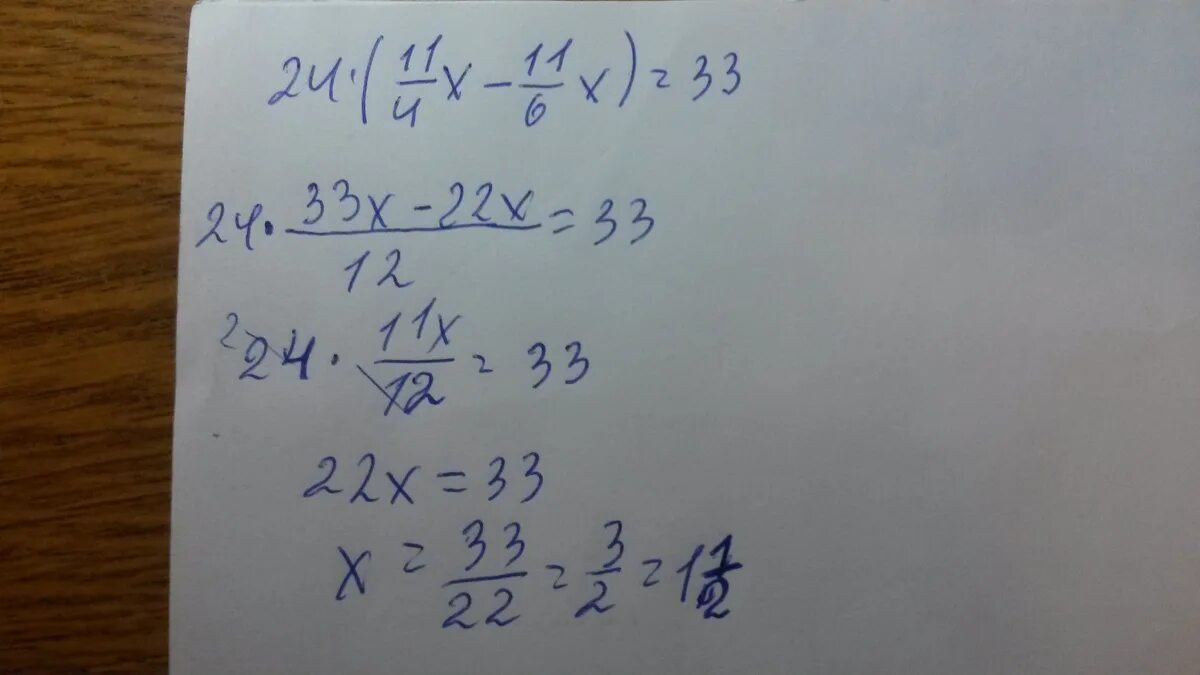 24·(11/4 x − 11/6 x) = 33
24·(33x − 22x)/12 = 33
²24 · 11x/12 = 33
22x = 33
x = 33/22 = 3/2 = 1 1/2